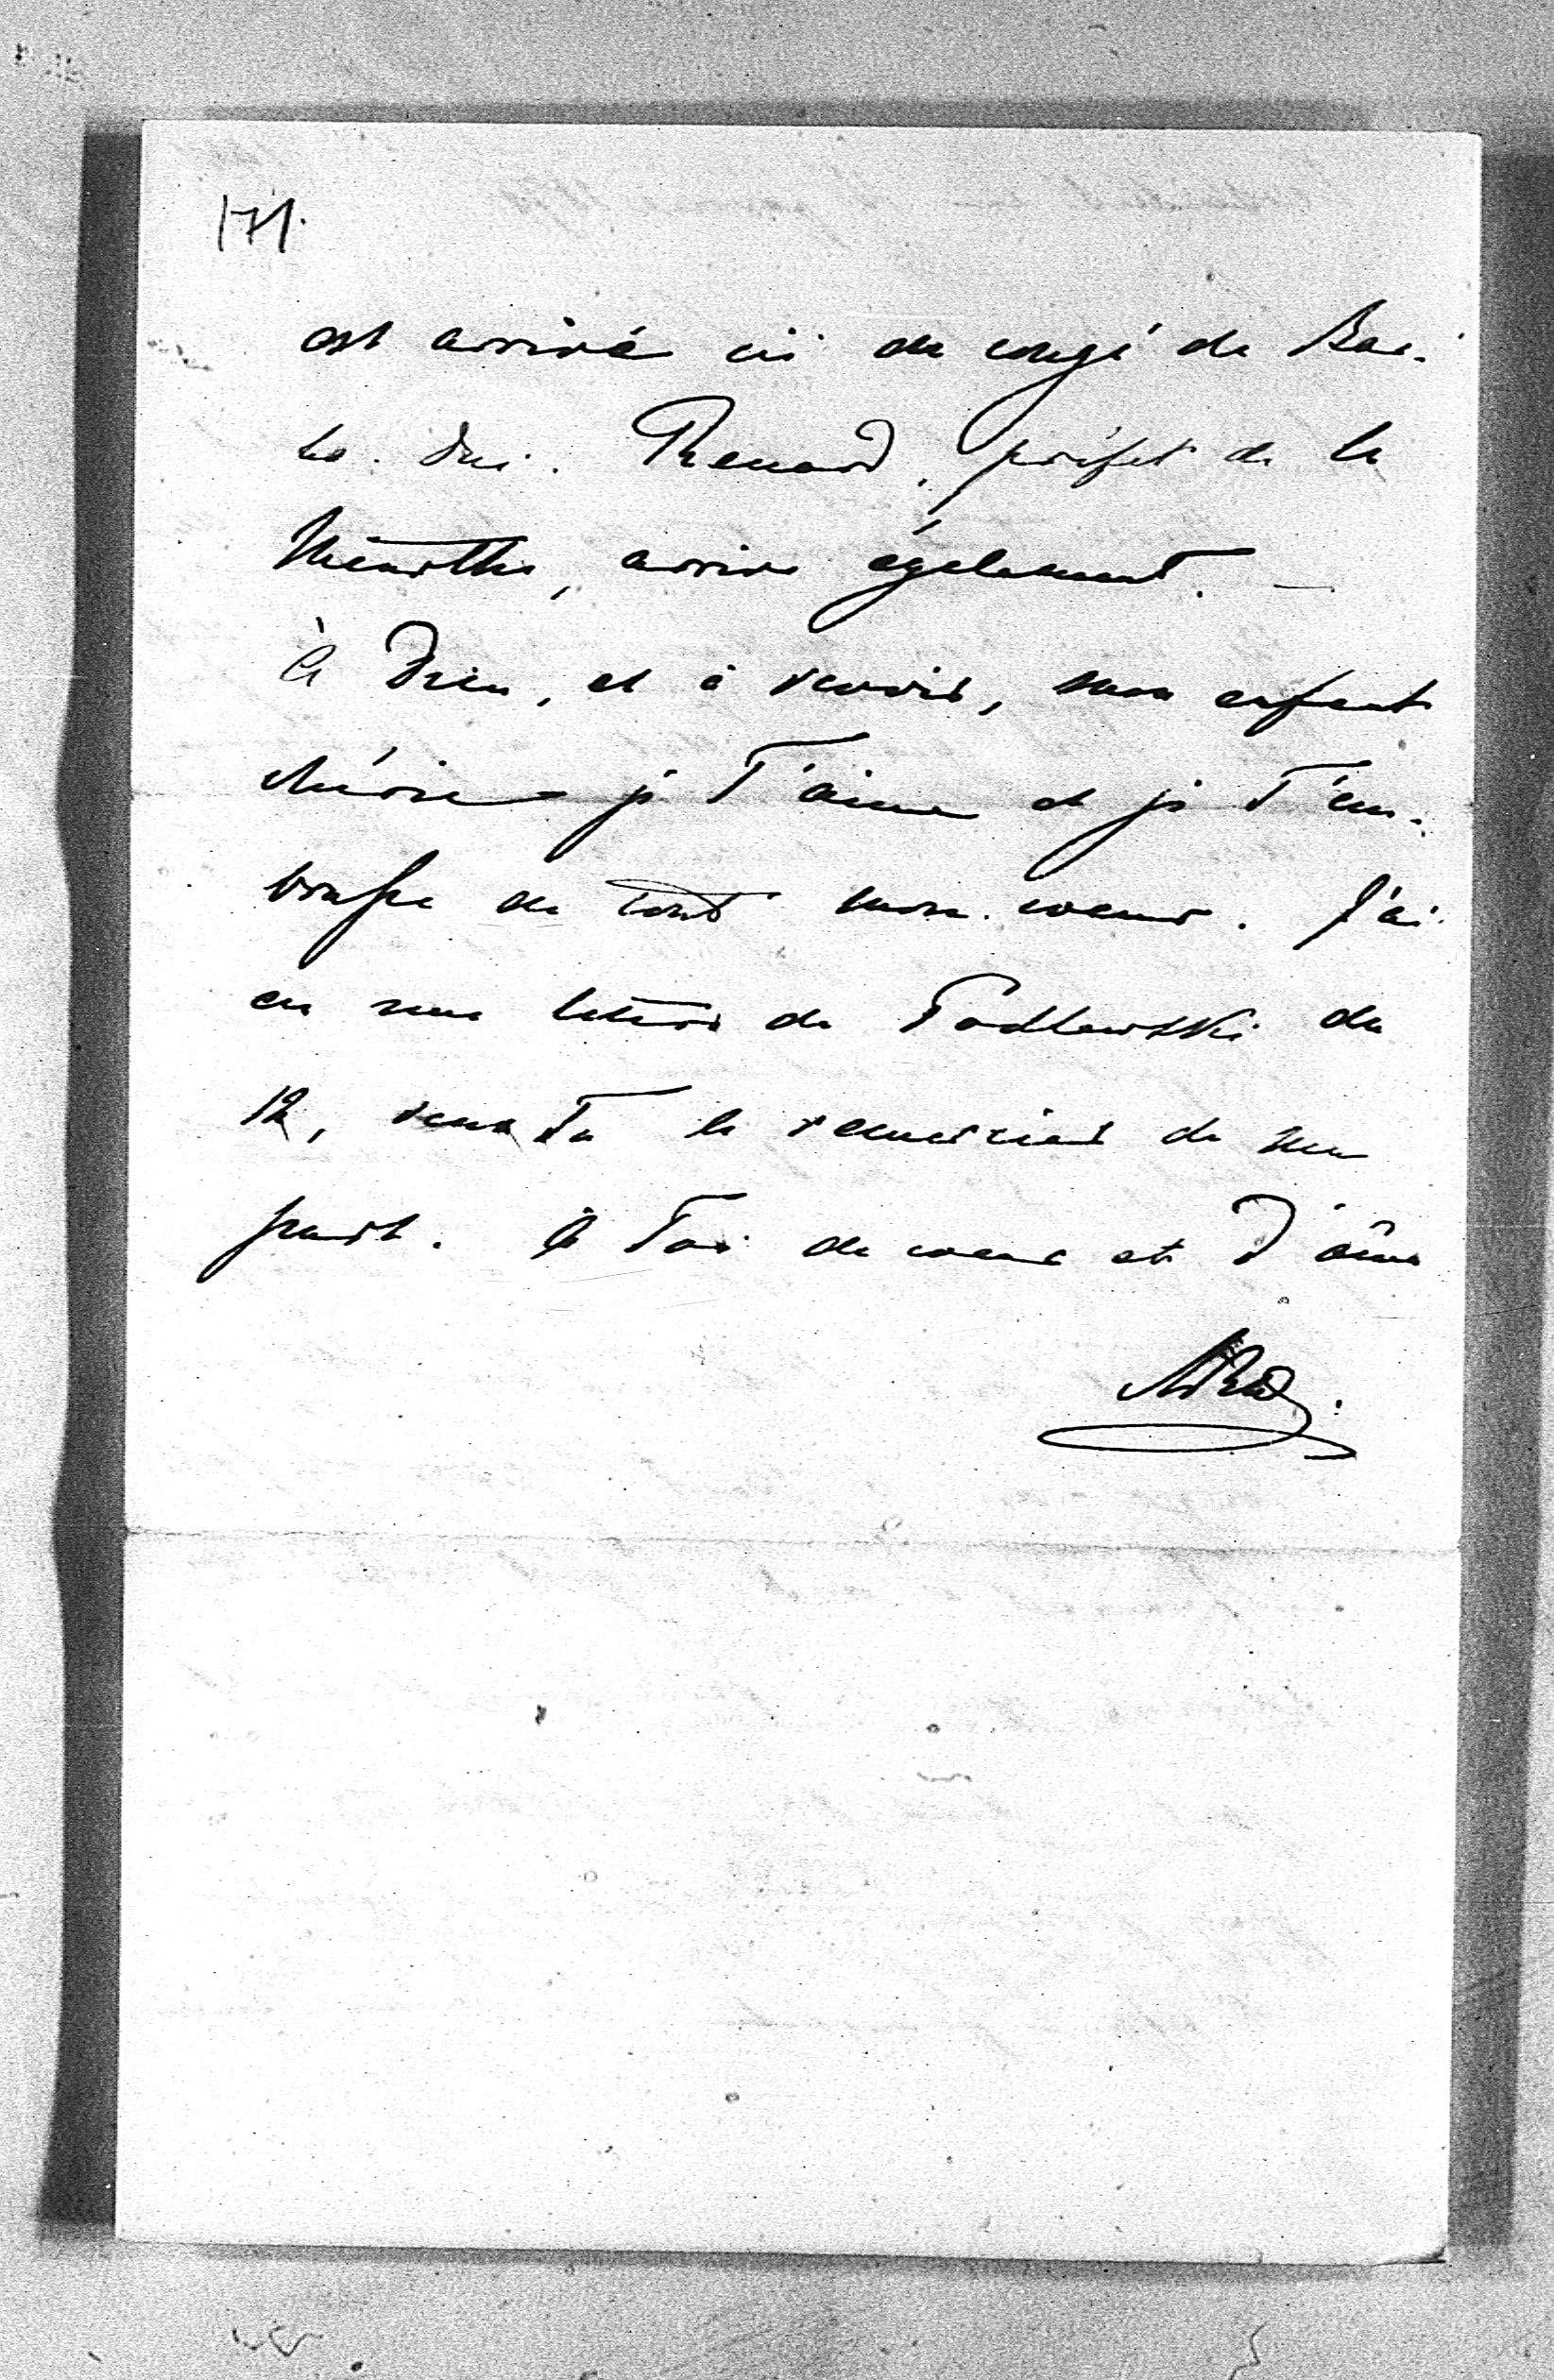 171.
est arrivé ici de congé de Bar-
le-Duc. Renard, préfet de la
Meurthe, arrive également. —
à Dieu, et à revoir, mon enfant
chérie je T'aime et je T'em-
brasse de tout mon coeur. J'ai
eu une lettre de Podlewski du
12, veux Tu le remercier de ma
part. à Toi de coeur et d'âme